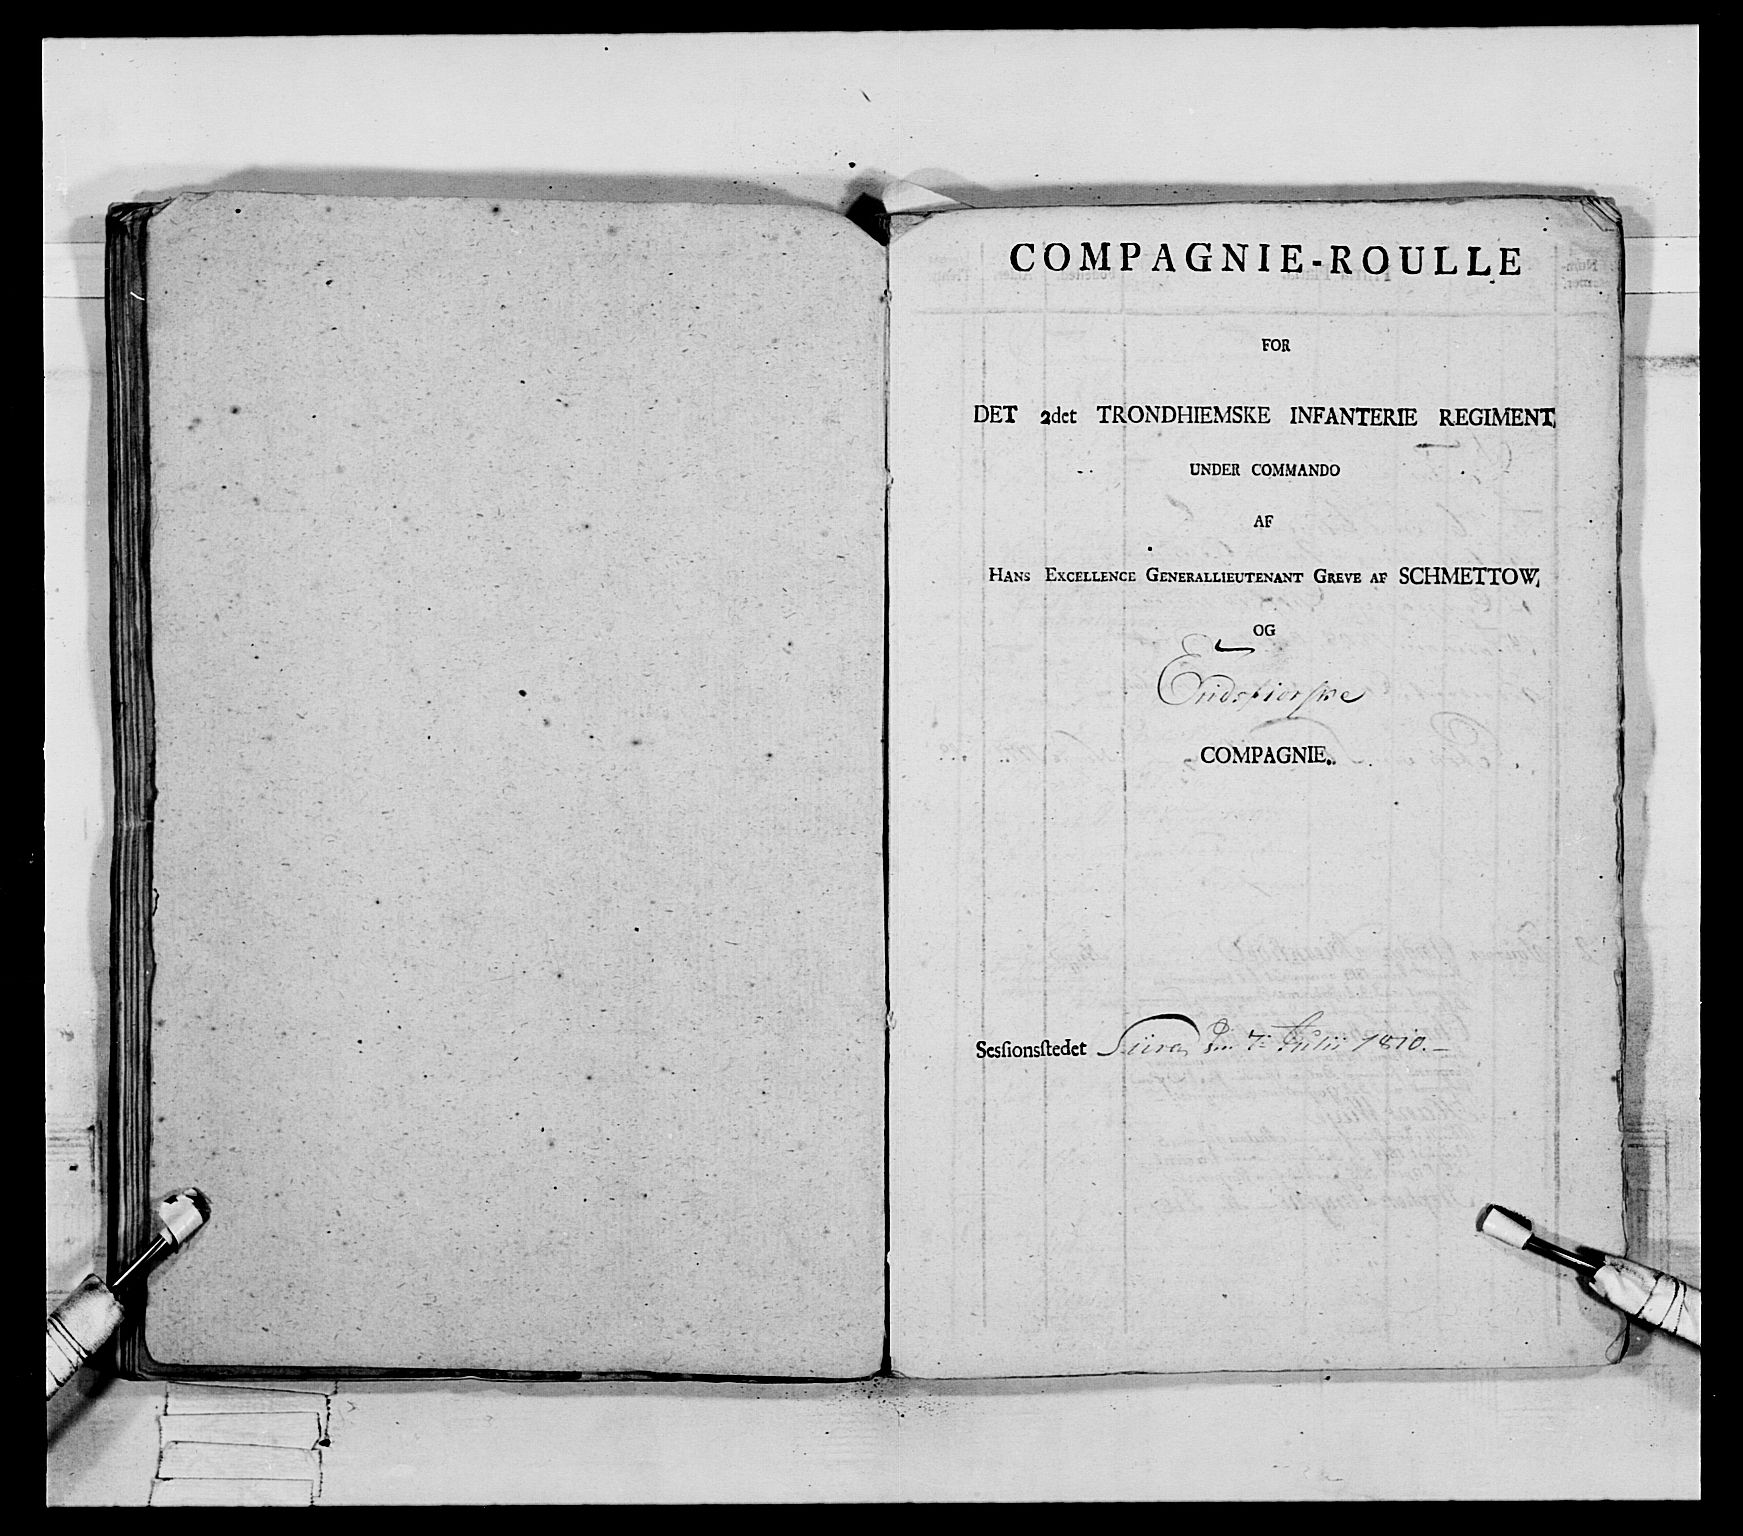 COMPAGNIE-ROULLE
FOR
DET 2det TRONDHIEMSKE INFANTERIE REGIMENT,
UNDER COMMANDO
AF
HANS EXCELLENCE GENERALLIEUTENANT GREVE AF SCHMETTOW,
OG
COMPAGNIE.
Sessionsstedet den 7de Julii 1810.